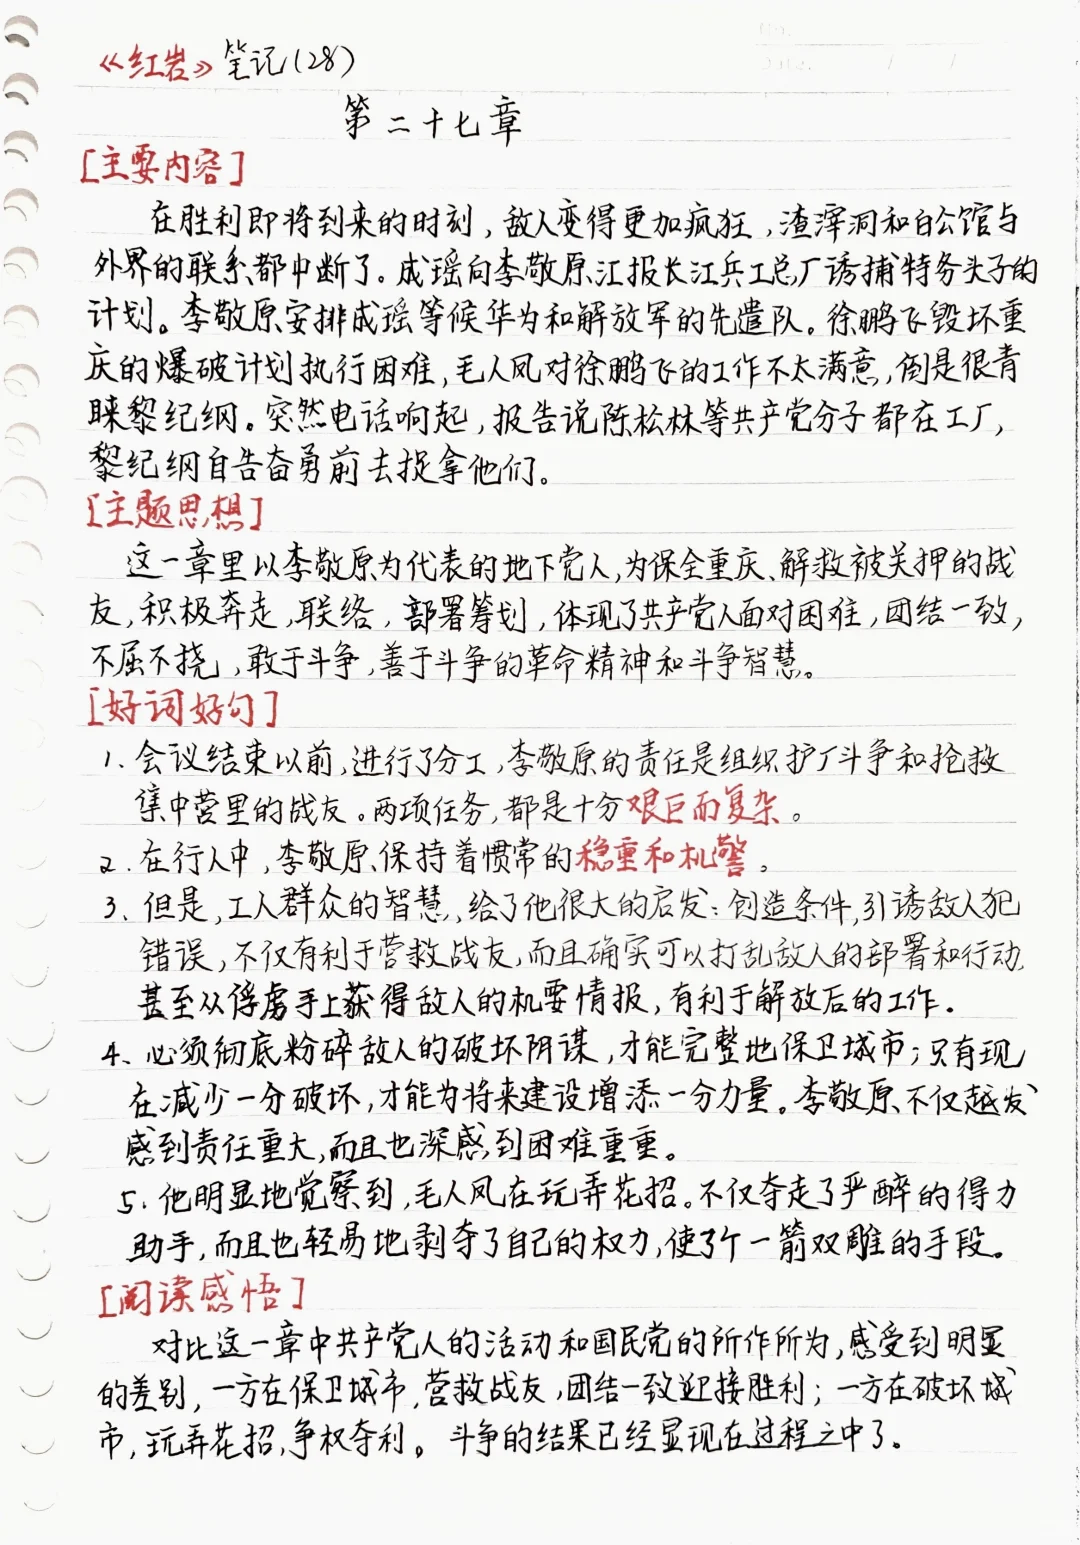 《红岩》笔记(28)
第二十七章
[主要内容]
在胜利即将到来的时刻,敌人变得更加疯狂,渣滓洞和白公馆与
外界的联系都中断了。成瑶向李敬原汇报长江兵工总厂诱捕特务头子的
计划。李敬原安排成瑶等候华为和解放军的先遣队。徐鹏飞毁坏重
庆的爆破计划执行困难,毛人凤对徐鹏飞的工作不太满意,倒是很青
睐黎纪纲。突然电话响起,报告说陈松林等共产党分子都在工厂,
黎纪纲自告奋勇前去捉拿他们。
[主题思想]
这一章里以李敬原为代表的地下党人,为保全重庆、解救被关押的战
友,积极奔走,联络,部署筹划,体现了共产党人面对困难,团结一致,
不屈不挠,敢于斗争,善于斗争的革命精神和斗争智慧。
[好词好句]
1、会议结束以前,进行了分工,李敬原的责任是组织护厂斗争和抢救
集中营里的战友。两项任务,都是十分艰巨而复杂。
2.在行人中,李敬原保持着惯常的稳重和机警。
3、但是,工人群众的智慧,给了他很大的启发:创造条件,引诱敌人犯
错误,不仅有利于营救战友,而且确实可以打乱敌人的部署和行动,
甚至从俘虏手上获得敌人的机要情报,有利于解放后的工作.
4、必须彻底粉碎敌人的破坏阴谋,才能完整地保卫城市;只有现
在减少一分破坏,才能为将来建设增添一分力量。李敬原不仅越发
感到责任重大,而且也深感到困难重重。
5.他明显地觉察到,毛人凤在玩弄花招。不仅夺走了严醉的得力
助手,而且也轻易地剥夺了自己的权力,使了个一箭双雕的手段。
[阅读感悟]
对比这一章中共产党人的活动和国民党的所作所为,感受到明显
的差别,一方在保卫城市,营救战友,团结一致迎接胜利;一方在破坏城
市,玩弄花招,争权夺利。斗争的结果已经显现在过程之中了。